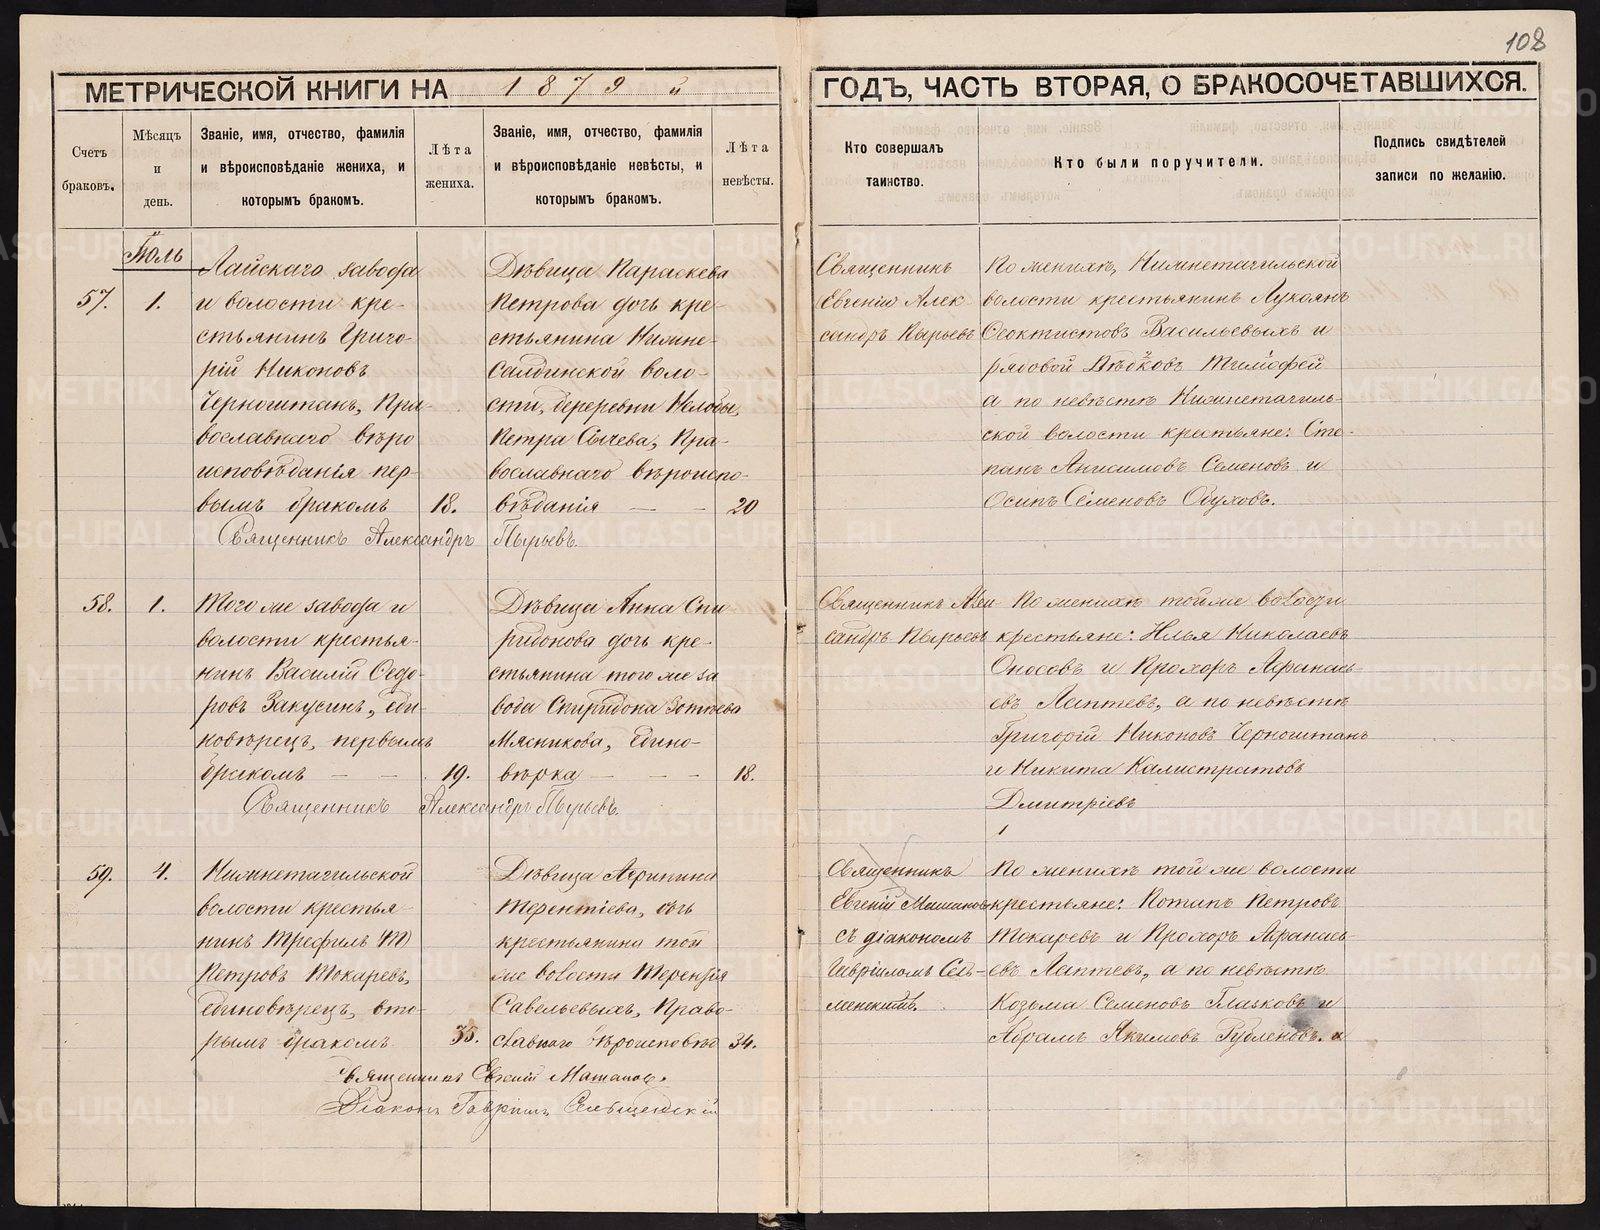 108
МЕТРИЧЕСКОЙ КНИГИ НА 1879 й
ГОДЪ, ЧАСТЬ ВТОРАЯ, О БРАКОСОЧЕТАВШИХСЯ.
Счетъ
браковъ.
Мѣсяцъ
и
день.
Званіе, имя, отчество, фамилія
и вѣроисповѣданіе жениха, и
которымъ бракомъ.
Лѣта
жениха.
Званіе, имя, отчество, фамилія
и вѣроисповѣданіе невѣсты, и
которымъ бракомъ.
Лѣта
невѣсты.
Кто совершалъ
таинство.
Кто были поручители.
Подпись свидѣтелей
записи по желанію.
Іюль
57.
1.
Лайскаго завода
и волости кре-
стьянинъ Григо-
рій Никоновъ
Черноштанъ, Пра-
вославнаго вѣро
исповѣданія пер-
вымъ бракомъ
18.
Дѣвица Параскева
Петрова дочь кре-
стьянина Нижне-
Салдинской воло-
сти, деревни Нелобы,
Петра Сычева, Пра-
вославнаго вѣроиспо-
вѣданія — —
20
Священникъ
Евгеній Алек
сандръ Пырьевъ
По женихѣ, Нижнетагильской
волости крестьянинъ Лукоянъ
Феоктистовъ Васильевыхъ и
рядовой Дѣдковъ Тимофей
а по невѣстѣ Нижнетагиль-
ской волости крестьяне: Сте-
панъ Анисимовъ Семеновъ и
Осипъ Семеновъ Обуховъ.
Священникъ Александръ Пырьевъ.
58.
1.
Того же завода и
волости крестья-
нинъ Василій Сидо-
ровъ Закусинъ, еди-
новѣрецъ, первымъ
бракомъ — —
19.
Дѣвица Анна Спи
ридонова дочь кре-
стьянина того же за
вода Спиридона Зотѣева
Мясникова, Едино-
вѣрка — — —
18.
Священникъ Алек
сандръ Пырьевъ
По женихѣ той же волости
крестьяне: Илья Николаевъ
Оносовъ и Прохоръ Афанась-
евъ Лаптевъ, а по невѣстѣ
Григорій Никоновъ Черноштанъ
и Никита Калистратовъ
Дмитріевъ
Священникъ Александръ Пырьевъ.
59.
4.
Нижнетагильской
волости крестья-
нинъ Трефилъ (Т)
Петровъ Токаревъ,
единовѣрецъ, вто-
рымъ бракомъ
35.
Дѣвица Агрипина
Терентіева, дочь
крестьянина той
же волости Терентія
Савельевыхъ, Право-
славнаго вѣроисповѣд
34.
Священникъ
Евгеній Машановъ
съ діакономъ
Гавріиломъ Сель-
менскимъ.
По женихѣ той же волости
крестьяне: Потапъ Петровъ
Токаревъ и Прохоръ Афанась-
евъ Лаптевъ, а по невѣстѣ
Козьма Семеновъ Глазковъ и
Абрамъ Акимовъ Рубленовъ.
Священникъ Евгеній Машановъ.
Діаконъ Гавріилъ
METRIKI.GASO-URAL.RU